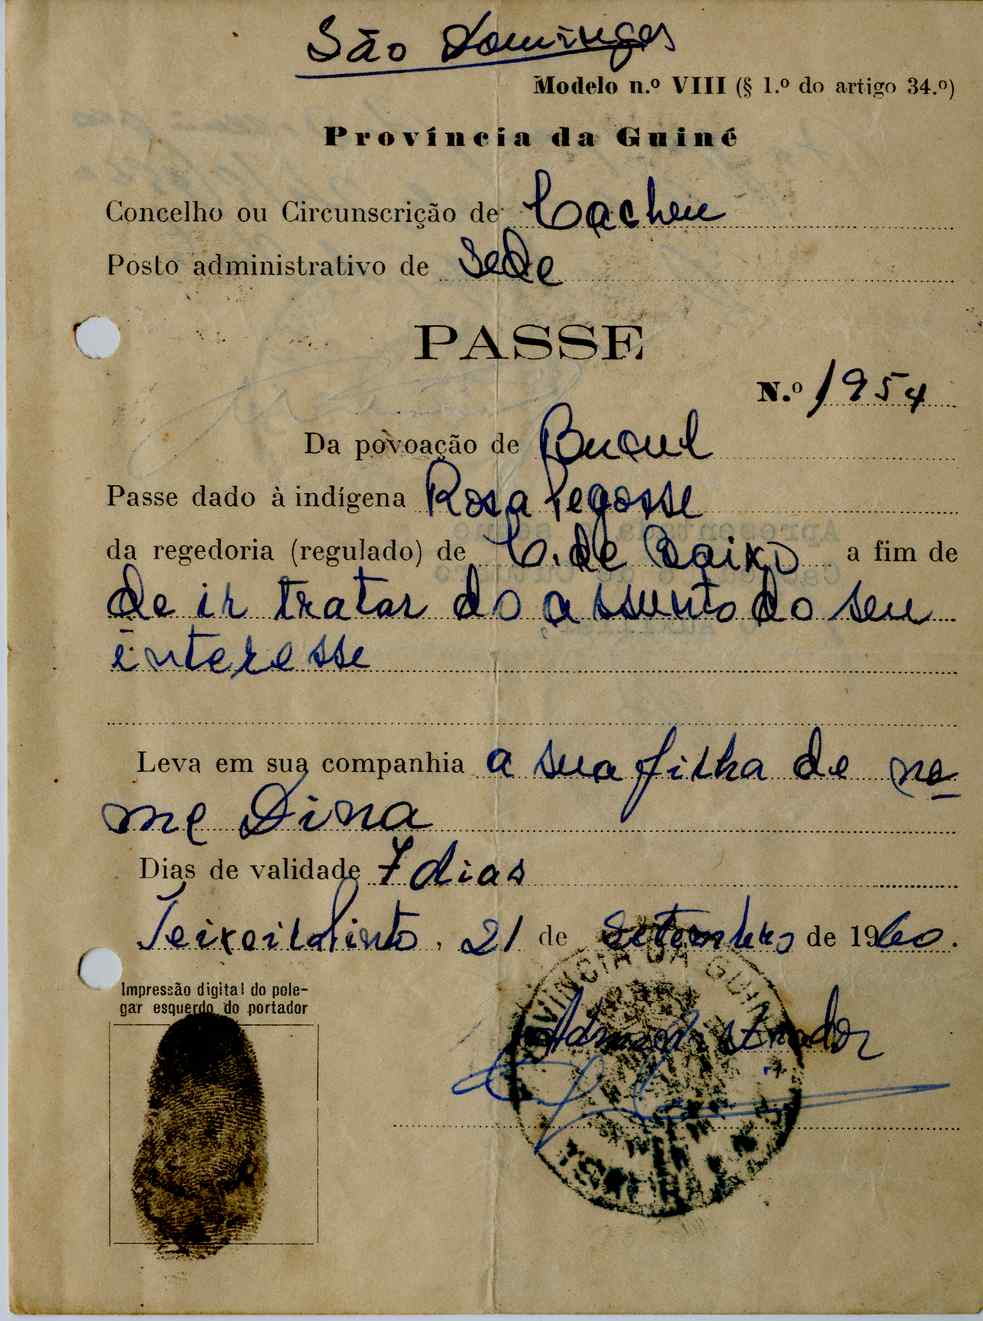 São Domingos
Modelo n.º VIII (§ 1.º do artigo 34.º)
Província da Guiné
Concelho ou Circunscrição de Cacheu
Posto administrativo de Sede
PASSE
N.º 1954
Da povoação de Bucul
Passe dado à indígena Rosa Pegosse
da regedoria (regulado) de C. de Baixo a fim de
de ir tratar do assunto do seu
interesse
Leva em sua companhia a sua filha de no-
me Dina
Dias de validade 7 dias
Teixeira Pinto, 21 de Setembro de 1960.
Impressão digital do pole-
gar esquerdo do portador
PROVÍNCIA DA GUINÉ
Administrador